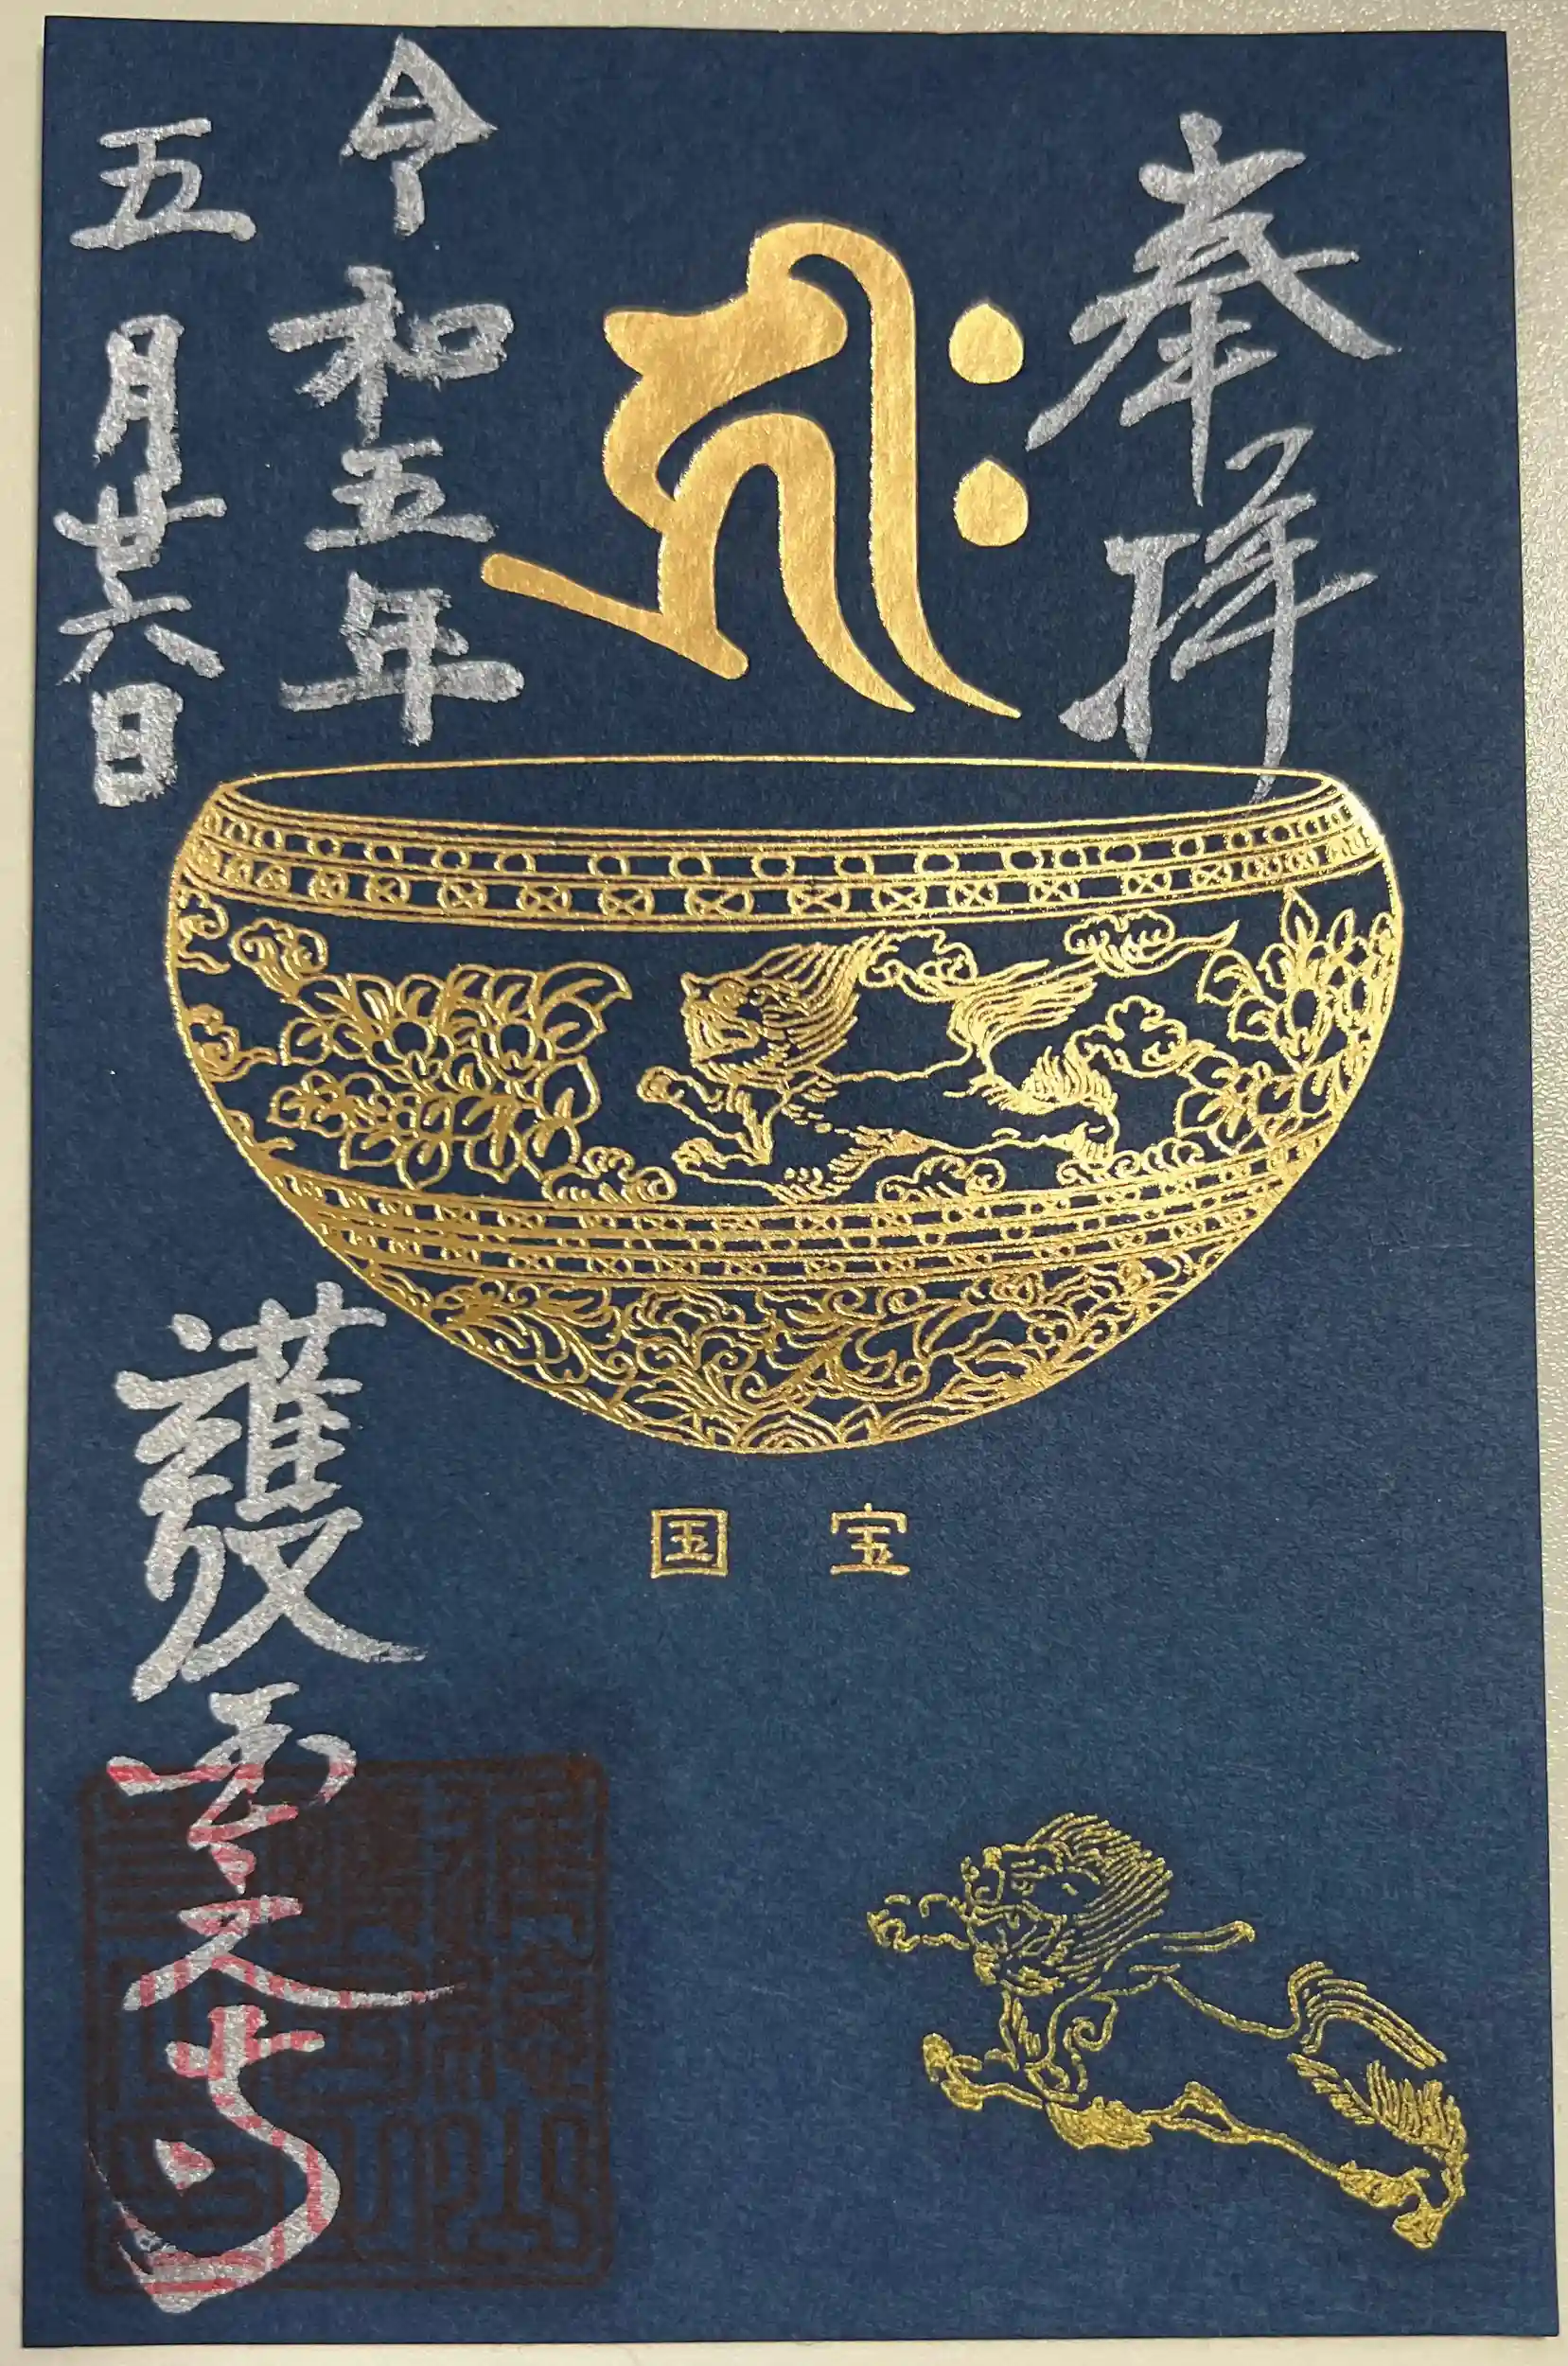 奉拝
𑖮𑖿𑖨𑖱𑖾
令和五年
五月廿六日
国宝
護国之寺